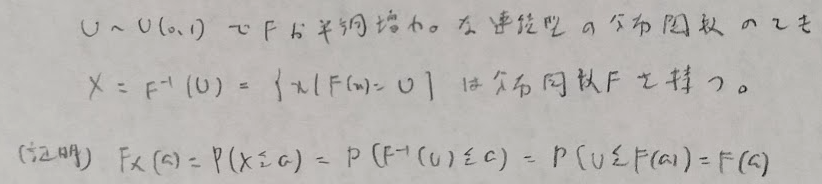 U ~ U(0,1) で F が単調増加な連続型の分布関数のとき
X = F⁻¹(U) = {x | F(x) = U} は分布関数Fを持つ。
(証明) Fx(a) = P(X ≤ a) = P(F⁻¹(U) ≤ a) = P(U ≤ F(a)) = F(a)